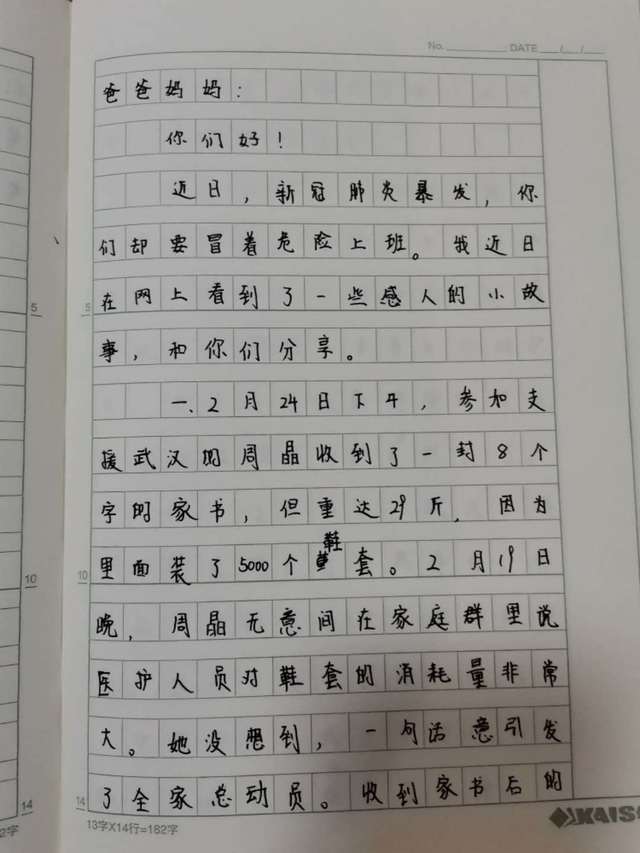 No. DATE / /
爸爸妈妈：
你们好！
近日，新冠肺炎暴发，你
们却要冒着危险上班。我近日
在网上看到了一些感人的小故
事，和你们分享。
一、2月24日下午，参加支
援武汉的周晶收到了一封8个
字的家书，但重达29斤，因为
里面装了5000个鞋套。2月19日
晚，周晶无意间在家庭群里说
医护人员对鞋套的消耗量非常
大。她没想到，一句话竟引发
了全家总动员。收到家书后的
5
5
10
10
14
14
2字
13字X14行=182字
KAIS